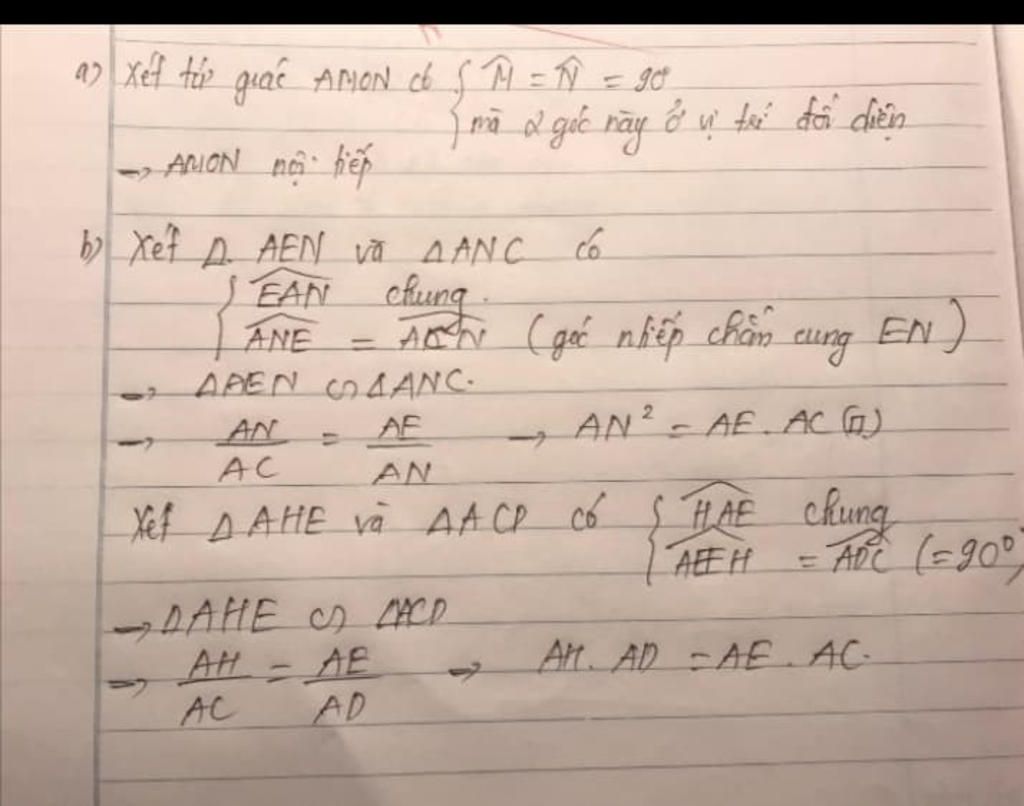 a) Xét tứ giác AMON có { M̂ = N̂ = 90°
mà 2 góc này ở vị trí đối diện
→ AMON nội tiếp
b) Xét Δ. AEN và ΔANC có
{ EAN chung.
ANE = ACN (góc nhiếp chắn cung EN)
→ ΔAEN ∽ ΔANC.
→ AN/AC = AE/AN → AN² = AE. AC
Xét ΔAHE và ΔACD có { HAE chung
AEH = ADC (=90°)
→ ΔAHE ∽ ΔACD
→ AH/AC = AE/AD → AH. AD = AE. AC.